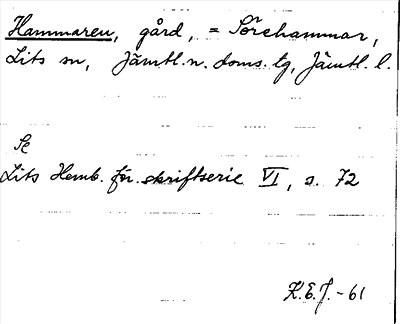 Hammaren, gård, = Sörehammar,
Lits sn, Jämtl. n. doms. tg, Jämtl. l.
Se
Lits Hemb. för. skriftserie VI, s. 72
K.E.J. -61